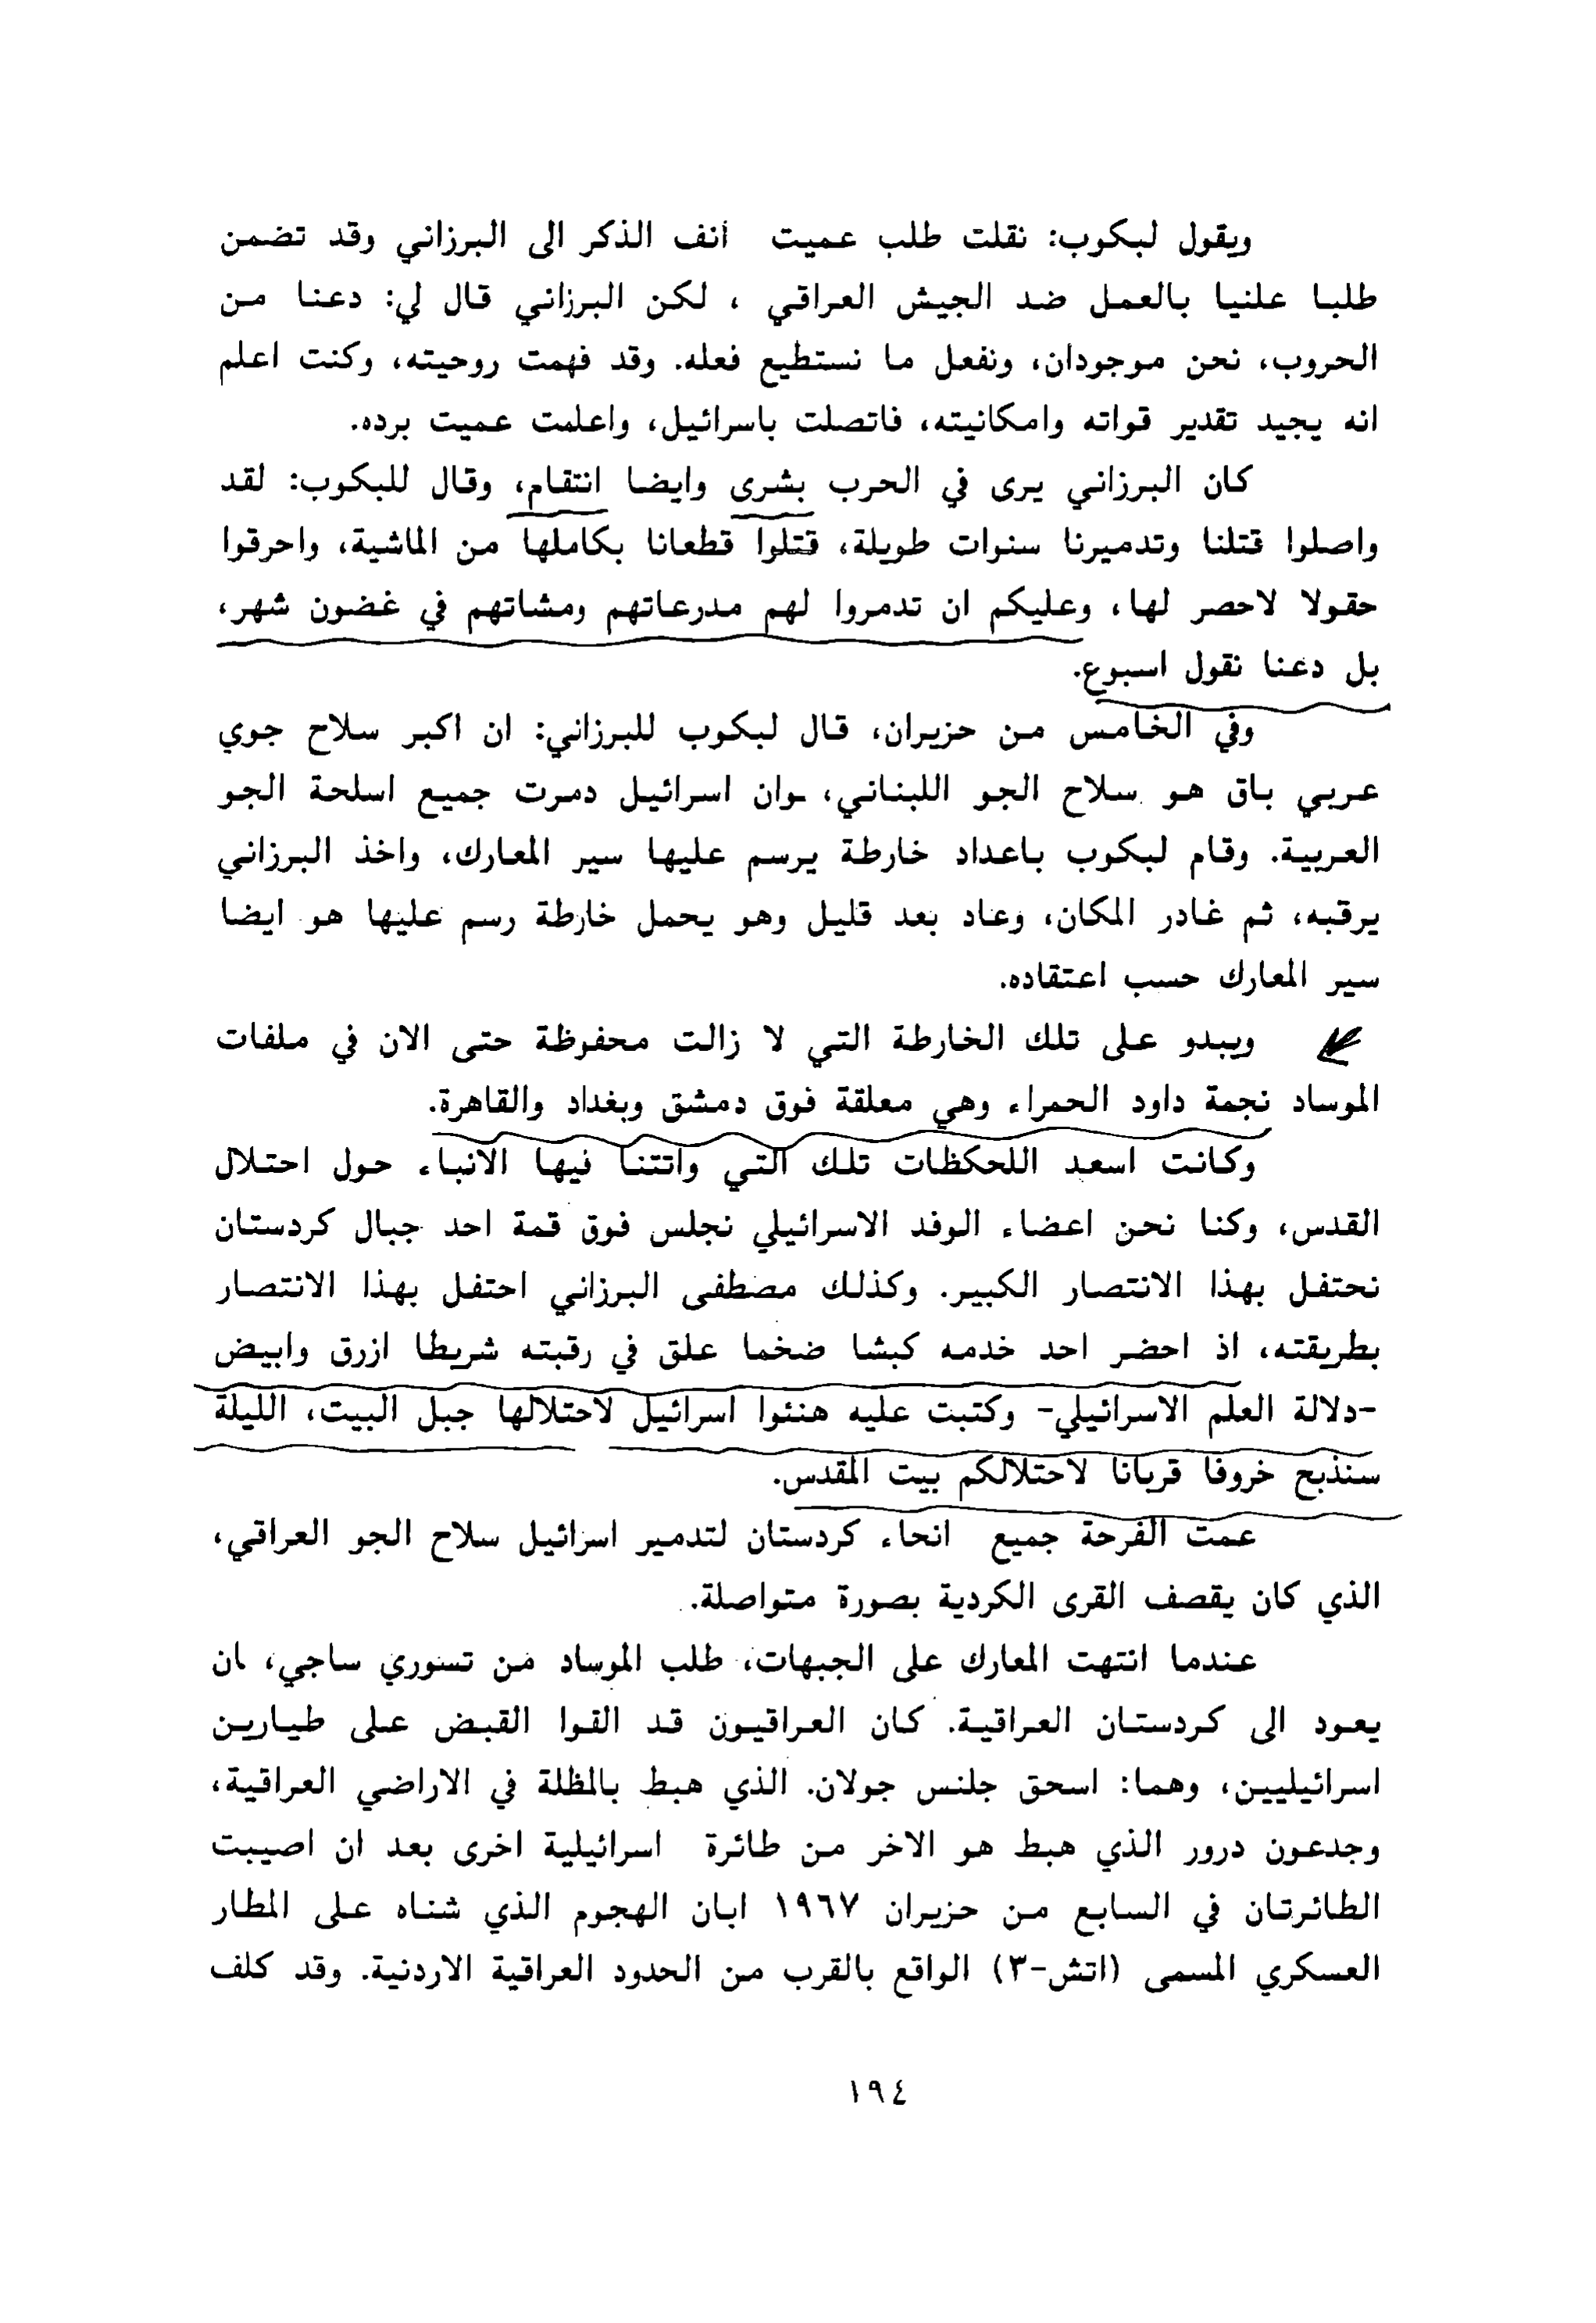 ويقول لبكوب: نقلت طلب عميت أنف الذكر الى البرزاني وقد تضمن
طلبا علنيا بالعمل ضد الجيش العراقي ، لكن البرزاني قال لي: دعنا من
الحروب، نحن موجودان، ونفعل ما نستطيع فعله. وقد فهمت روحيته، وكنت اعلم
انه يجيد تقدير قواته وامكانيته، فاتصلت باسرائيل، واعلمت عميت برده.
كان البرزاني يرى في الحرب بشرى وايضا انتقام، وقال للبكوب: لقد
واصلوا قتلنا وتدميرنا سنوات طويلة، قتلوا قطعانا بكاملها من الماشية، واحرقوا
حقولا لاحصر لها، وعليكم ان تدمروا لهم مدرعاتهم ومشاتهم في غضون شهر،
بل دعنا نقول اسبوع.
وفي الخامس من حزيران، قال لبكوب للبرزاني: ان اكبر سلاح جوي
عربي باق هو سلاح الجو اللبناني، وان اسرائيل دمرت جميع اسلحة الجو
العربية. وقام لبكوب باعداد خارطة يرسم عليها سير المعارك، واخذ البرزاني
يرقبه، ثم غادر المكان، وعاد بعد قليل وهو يحمل خارطة رسم عليها هو ايضا
سير المعارك حسب اعتقاده.
ويبدو على تلك الخارطة التي لا زالت محفوظة حتى الان في ملفات
الموساد نجمة داود الحمراء وهي معلقة فوق دمشق وبغداد والقاهرة.
وكانت اسعد اللحكظات تلك التي واتتنا فيها الانباء حول احتلال
القدس، وكنا نحن اعضاء الوفد الاسرائيلي نجلس فوق قمة احد جبال كردستان
نحتفل بهذا الانتصار الكبير. وكذلك مصطفى البرزاني احتفل بهذا الانتصار
بطريقته، اذ احضر احد خدمه كبشا ضخما علق في رقبته شريطا ازرق وابيض
-دلالة العلم الاسرائيلي- وكتبت عليه هنئوا اسرائيل لاحتلالها جبل البيت، الليلة
سنذبح خروفا قربانا لاحتلالكم بيت المقدس.
عمت الفرحة جميع انحاء كردستان لتدمير اسرائيل سلاح الجو العراقي،
الذي كان يقصف القرى الكردية بصورة متواصلة.
عندما انتهت المعارك على الجبهات، طلب الموساد من تسوري ساجي، ان
يعود الى كردستان العراقية. كان العراقيون قد القوا القبض على طيارين
اسرائيليين، وهما: اسحق جلنس جولان. الذي هبط بالمظلة في الاراضي العراقية،
وجدعون درور الذي هبط هو الاخر من طائرة اسرائيلية اخرى بعد ان اصيبت
الطائرتان في السابع من حزيران ١٩٦٧ ابان الهجوم الذي شناه على المطار
العسكري المسمى (اتش-٣) الواقع بالقرب من الحدود العراقية الاردنية. وقد كلف
١٩٤